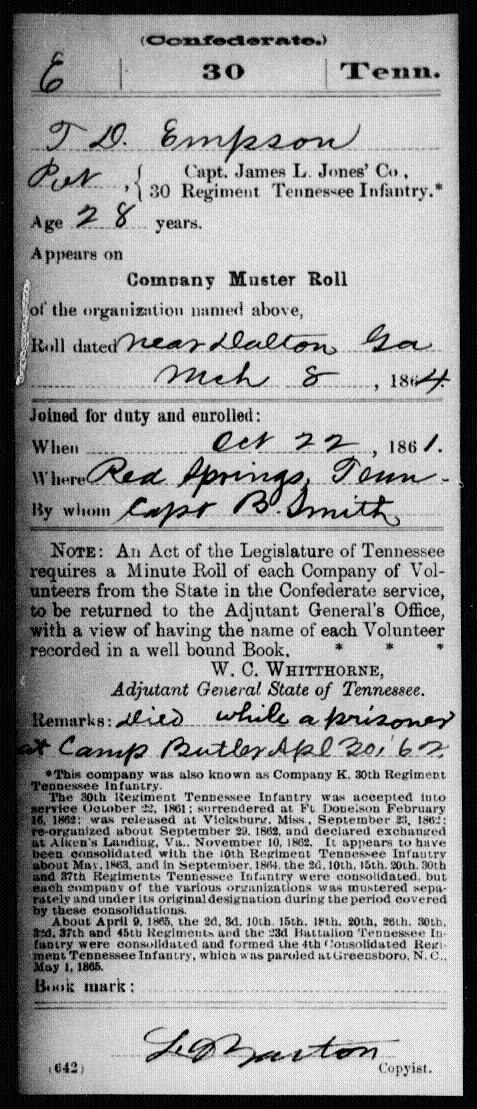 (Confederate.)
E | 30 | Tenn.
T D. Empson
Pvt , { Capt. James L. Jones' Co.,
30 Regiment Tennessee Infantry.*
Age 28 years.
Appears on
Company Muster Roll
of the organization named above,
Roll dated near Dalton, Ga
Mch 8 , 1864
Joined for duty and enrolled:
When Oct 22 , 1861.
Where Red Springs, Tenn.
By whom Capt B. Smith
NOTE: An Act of the Legislature of Tennessee
requires a Minute Roll of each Company of Vol-
unteers from the State in the Confederate service,
to be returned to the Adjutant General's Office,
with a view of having the name of each Volunteer
recorded in a well bound Book. * * *
W. C. WHITTHORNE,
Adjutant General State of Tennessee.
Remarks: Died while a prisoner
at Camp Butler Apl 20, '62
*This company was also known as Company K. 30th Regiment
Tennessee Infantry.
The 30th Regiment Tennessee Infantry was accepted into
service October 22, 1861; surrendered at Ft Donelson February
16, 1862; was released at Vicksburg, Miss., September 23, 1862;
re-organized about September 29, 1862, and declared exchanged
at Aiken's Landing, Va., November 10, 1862. It appears to have
been consolidated with the 10th Regiment Tennessee Infantry
about May, 1863, and in September, 1864, the 2d, 10th, 15th, 20th, 30th
and 37th Regiments Tennessee Infantry were consolidated, but
each company of the various organizations was mustered sepa-
rately and under its original designation during the period covered
by these consolidations.
About April 9, 1865, the 2d, 3d, 10th, 15th, 18th, 20th, 26th, 30th,
32d, 37th and 45th Regiments and the 23d Battalion Tennessee In-
fantry were consolidated and formed the 4th Consolidated Regi-
ment Tennessee Infantry, which was paroled at Greensboro, N. C.,
May 1, 1865.
Book mark:
Barton
(642) Copyist.